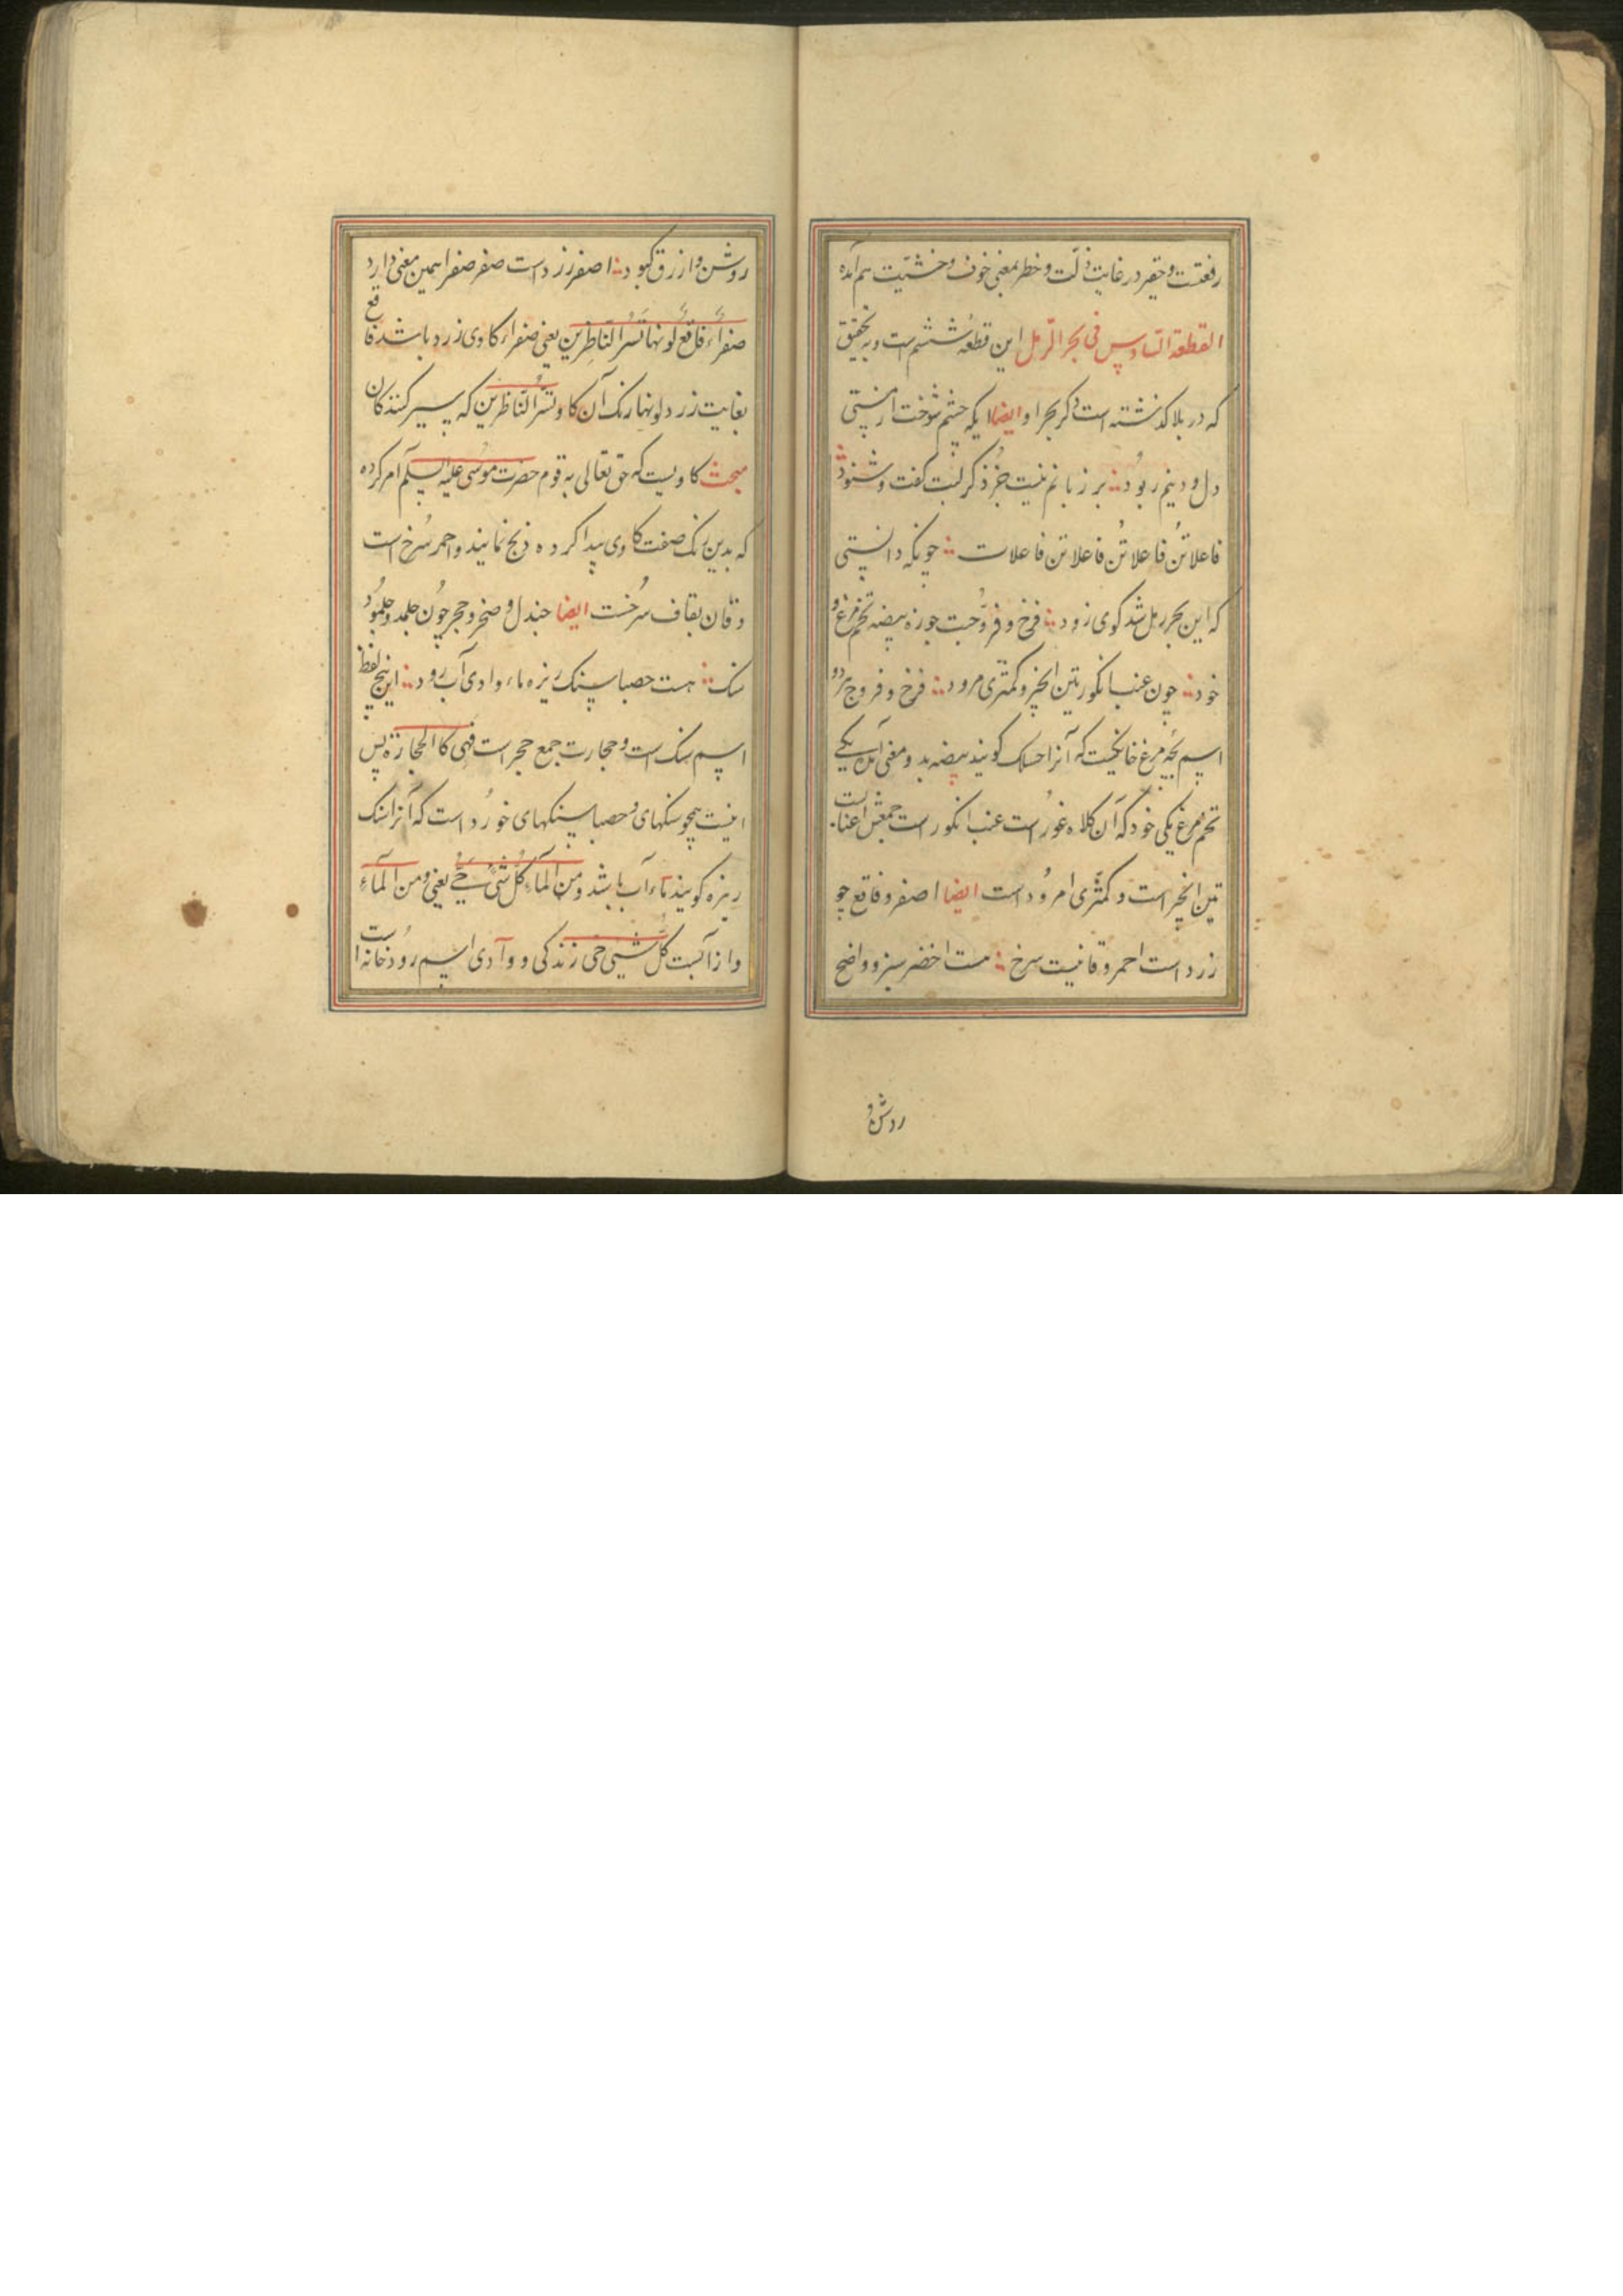 رفعتست و حقیر در غایت ذلّت و خطر بمعنی خوف و خشیّت هم آمده
القطعة السّادس فی بحر الرّمل این قطعهٔ ششم است و به تحقیق
که در بلا کذشته است ذکر بحر او ایضا ایکه چشم شوخت از مستی
دل و دینم ربود برزبانم نیست جز ذکر لبت کفت و شنود
فاعلاتن فاعلاتن فاعلاتن فاعلات جونکه دانستی
که این بحر رمل شد کوی زود فرخ و فرّوجت جوزه بیضه تخم مرغ و
خود چون عنب انکور تین انجیر و کمثری مرود فرخ و فروج هردو
اسم بچه مرغ خانکیست که آنرا کویند بیضه بدو معنی آمد یکی
تخم مرغ یکی خود که آن کلاه غور است عنب انکور است جمعش اعناب است
تین انجیر است و کمثّری امرود است ایضا اصفر و فاقع چو
زرد است احمر و قانیست سرخ هست اخضر سبز و واضح
روشن و
روشن و ازرق کبود اصفر زرد است صفر صفرا همین معنی دارد
صفراء فاقع لونها تسرّ النّاظرین یعنی صفراء کاوی زرد باشد فاقع
بغایت زرد لونها رنک آن کاو تسرّ النّاظرین که سیر کنندکان
مبحث کاویست که حق تعالی به قوم حضرت موسی علیه السلم امر کرده
که بدین رنک صفت کاوی پیدا کرده ذبح نمایند و احمر سرخ است
و قان بقاف سرخست ایضا جندل و صخر و حجر چون جلمد و جلمود
سنک هست حصبا سنک ریزه ماء وادی آب رود این پنج لفظ
اسم سنک است و حجارت جمع حجر است فهی کالحجارة پس
اینست همچو سنکهای و حصبا سنکهای خورد است که آنرا سنک
ریزه کویند ماء آب باشد و من المآء کلّ شیء حیّ یعنی و من المآء
و از آبست کلّ شیی حی زندکی و وآدی اسم رودخانه است